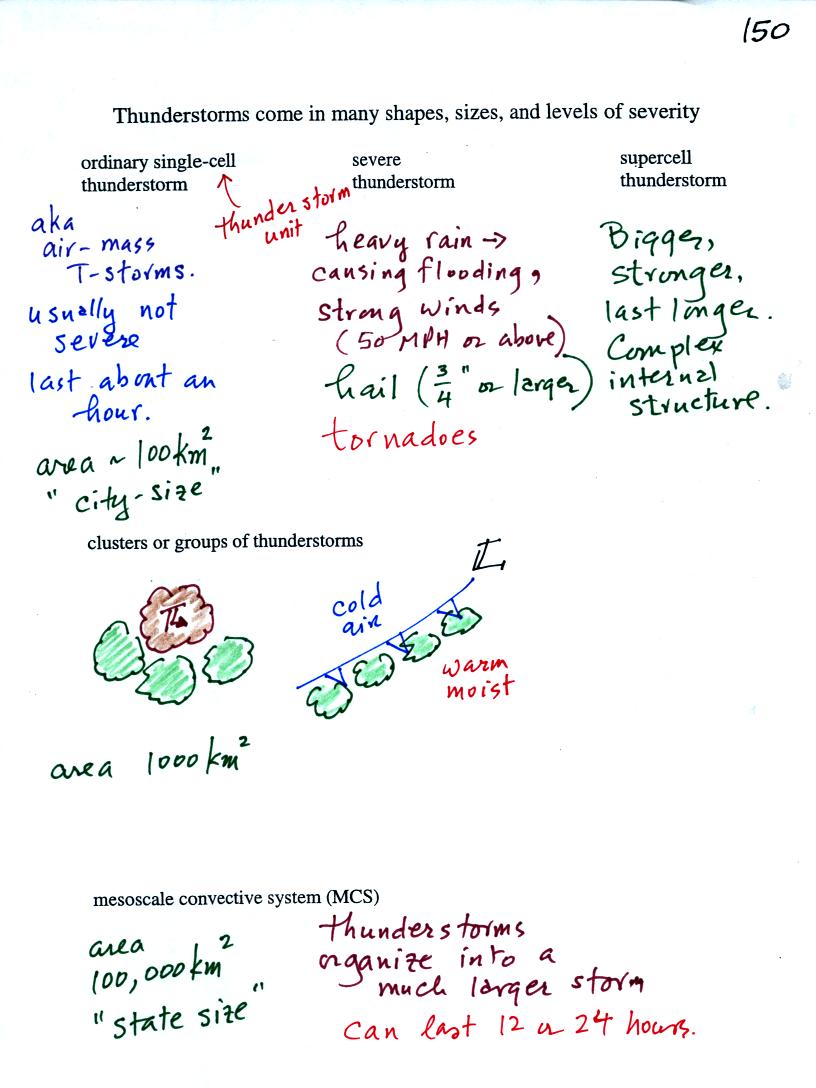 150
Thunderstorms come in many shapes, sizes, and levels of severity
ordinary single-cell
thunderstorm
thunderstorm
unit
aka
air-mass
T-storms.
usually not
severe
last about an
hour.
area ~ 100 km²
"city-size"
severe
thunderstorm
heavy rain →
causing flooding,
strong winds
(50 MPH or above)
hail (3/4" or larger)
tornadoes
supercell
thunderstorm
Bigger,
stronger,
last longer.
Complex
internal
structure.
clusters or groups of thunderstorms
cold
air
warm
moist
area 1000 km²
mesoscale convective system (MCS)
area
100,000 km²
"state size"
thunderstorms
organize into a
much larger storm
can last 12 or 24 hours.